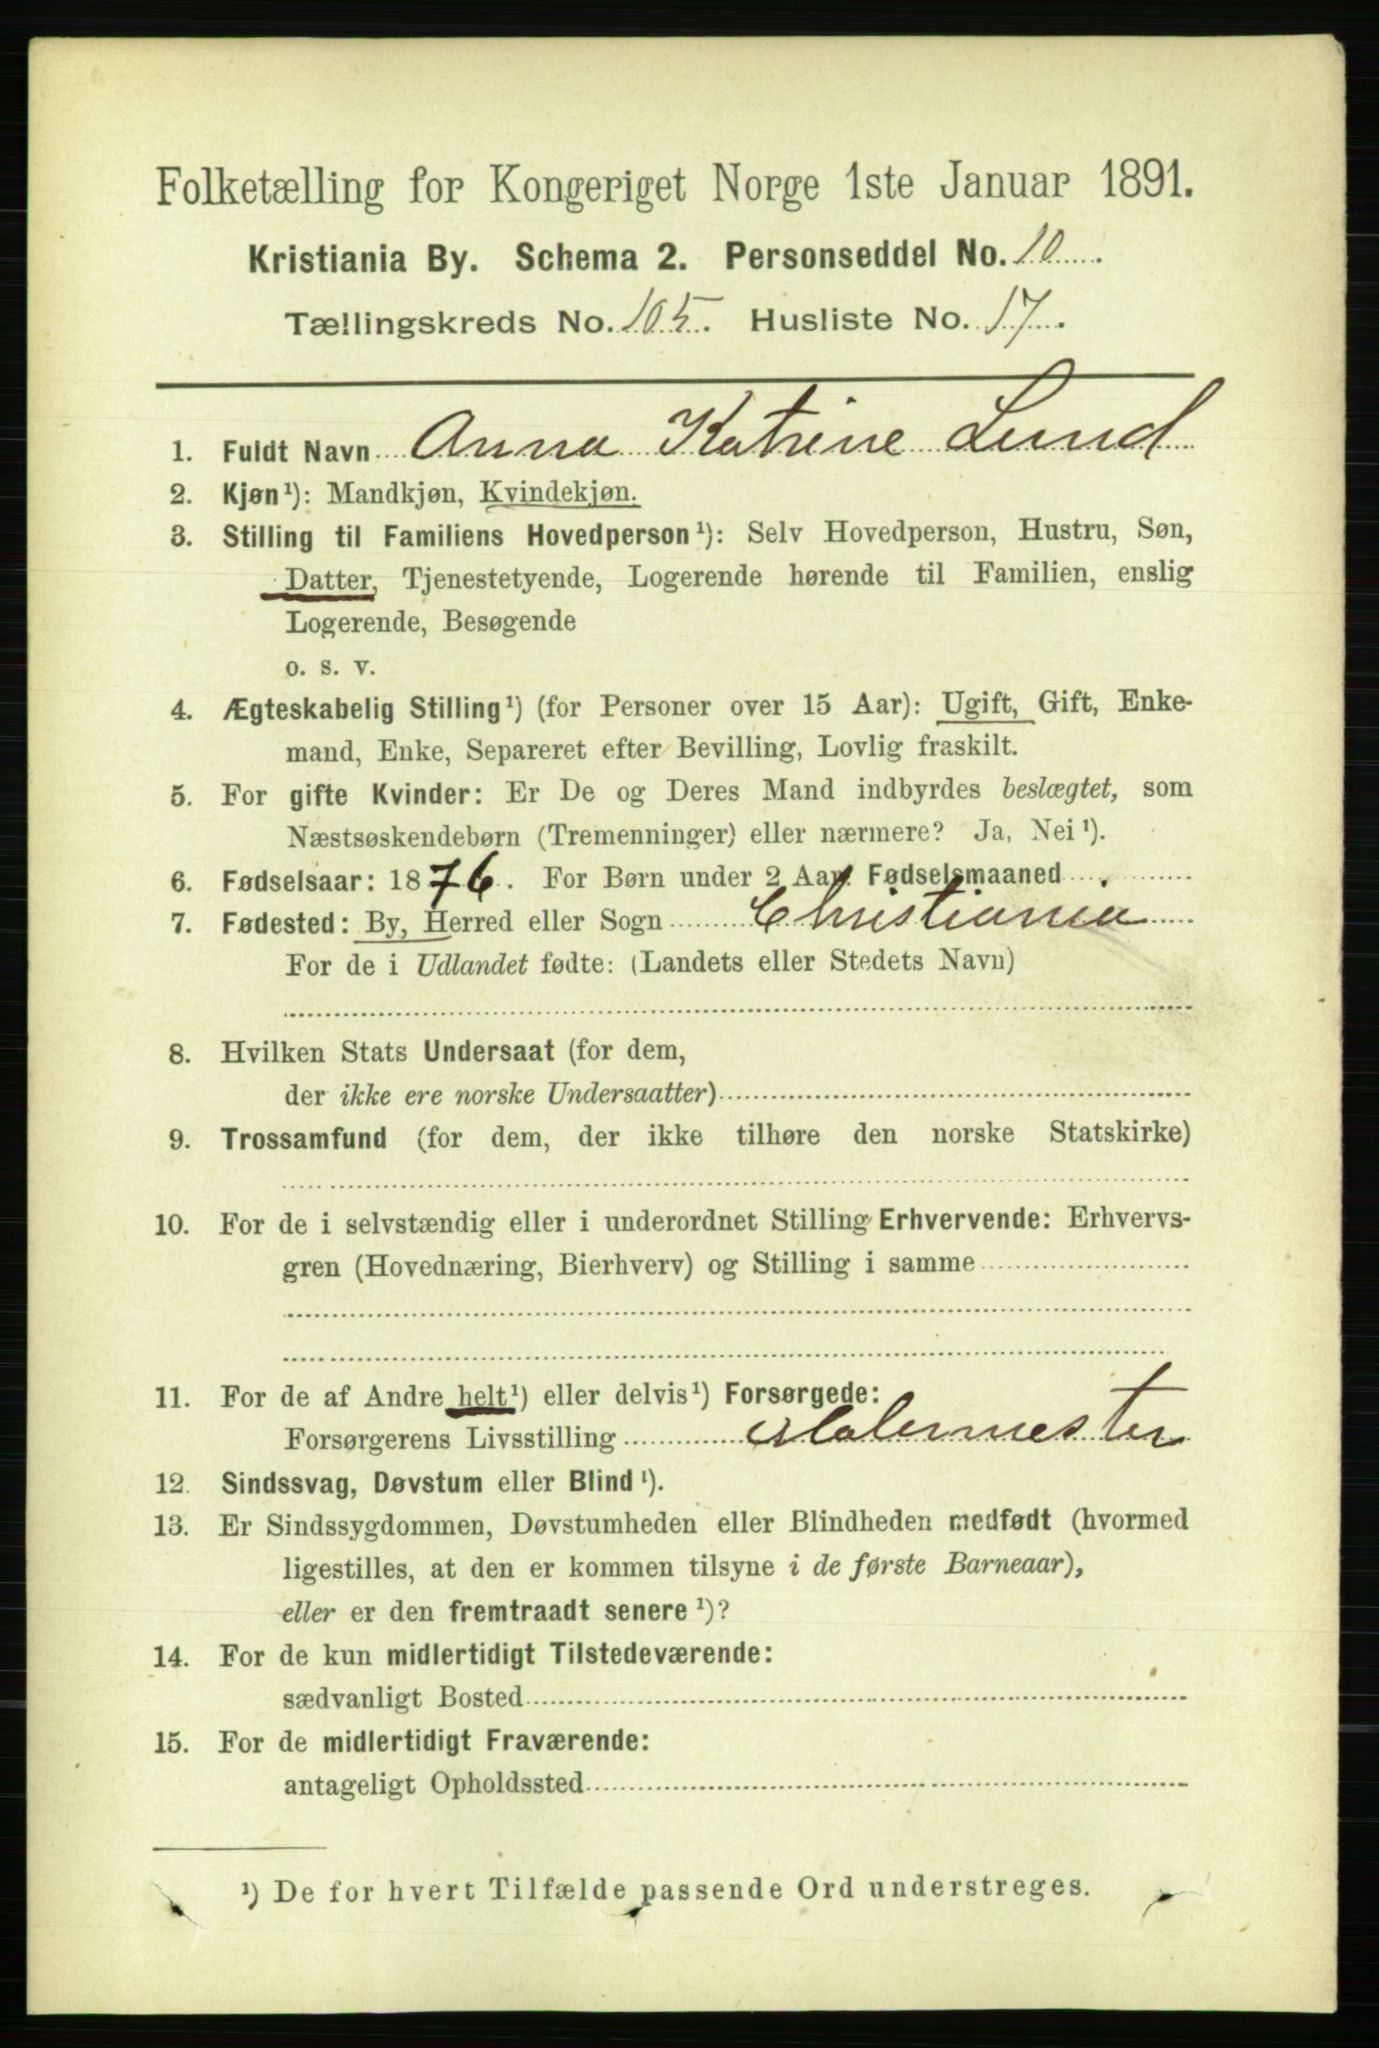 Folketælling for Kongeriget Norge 1ste Januar 1891.
Kristiania By. Schema 2. Personseddel No. 10
Tællingskreds No. 105. Husliste No. 17.
1. Fuldt Navn Anna Katrine Lund
2. Kjøn¹): Mandkjøn, Kvindekjøn.
3. Stilling til Familiens Hovedperson¹): Selv Hovedperson, Hustru, Søn,
Datter, Tjenestetyende, Logerende hørende til Familien, enslig
Logerende, Besøgende
o. s. v.
4. Ægteskabelig Stilling¹) (for Personer over 15 Aar): Ugift, Gift, Enke-
mand, Enke, Separeret efter Bevilling, Lovlig fraskilt.
5. For gifte Kvinder: Er De og Deres Mand indbyrdes beslægtet, som
Næstsøskendebørn (Tremenninger) eller nærmere? Ja, Nei¹).
6. Fødselsaar: 1876. For Børn under 2 Aar: Fødselsmaaned
7. Fødested: By, Herred eller Sogn Christiania
For de i Udlandet fødte: (Landets eller Stedets Navn)
8. Hvilken Stats Undersaat (for dem,
der ikke ere norske Undersaatter)
9. Trossamfund (for dem, der ikke tilhøre den norske Statskirke)
10. For de i selvstændig eller i underordnet Stilling Erhvervende: Erhvervs-
gren (Hovednæring, Bierhverv) og Stilling i samme
11. For de af Andre helt¹) eller delvis¹) Forsørgede:
Forsørgerens Livsstilling Malermester
12. Sindssvag, Døvstum eller Blind¹).
13. Er Sindssygdommen, Døvstumheden eller Blindheden medfødt (hvormed
ligestilles, at den er kommen tilsyne i de første Barneaar),
eller er den fremtraadt senere¹)?
14. For de kun midlertidigt Tilstedeværende:
sædvanligt Bosted
15. For de midlertidigt Fraværende:
antageligt Opholdssted
¹) De for hvert Tilfælde passende Ord understreges.